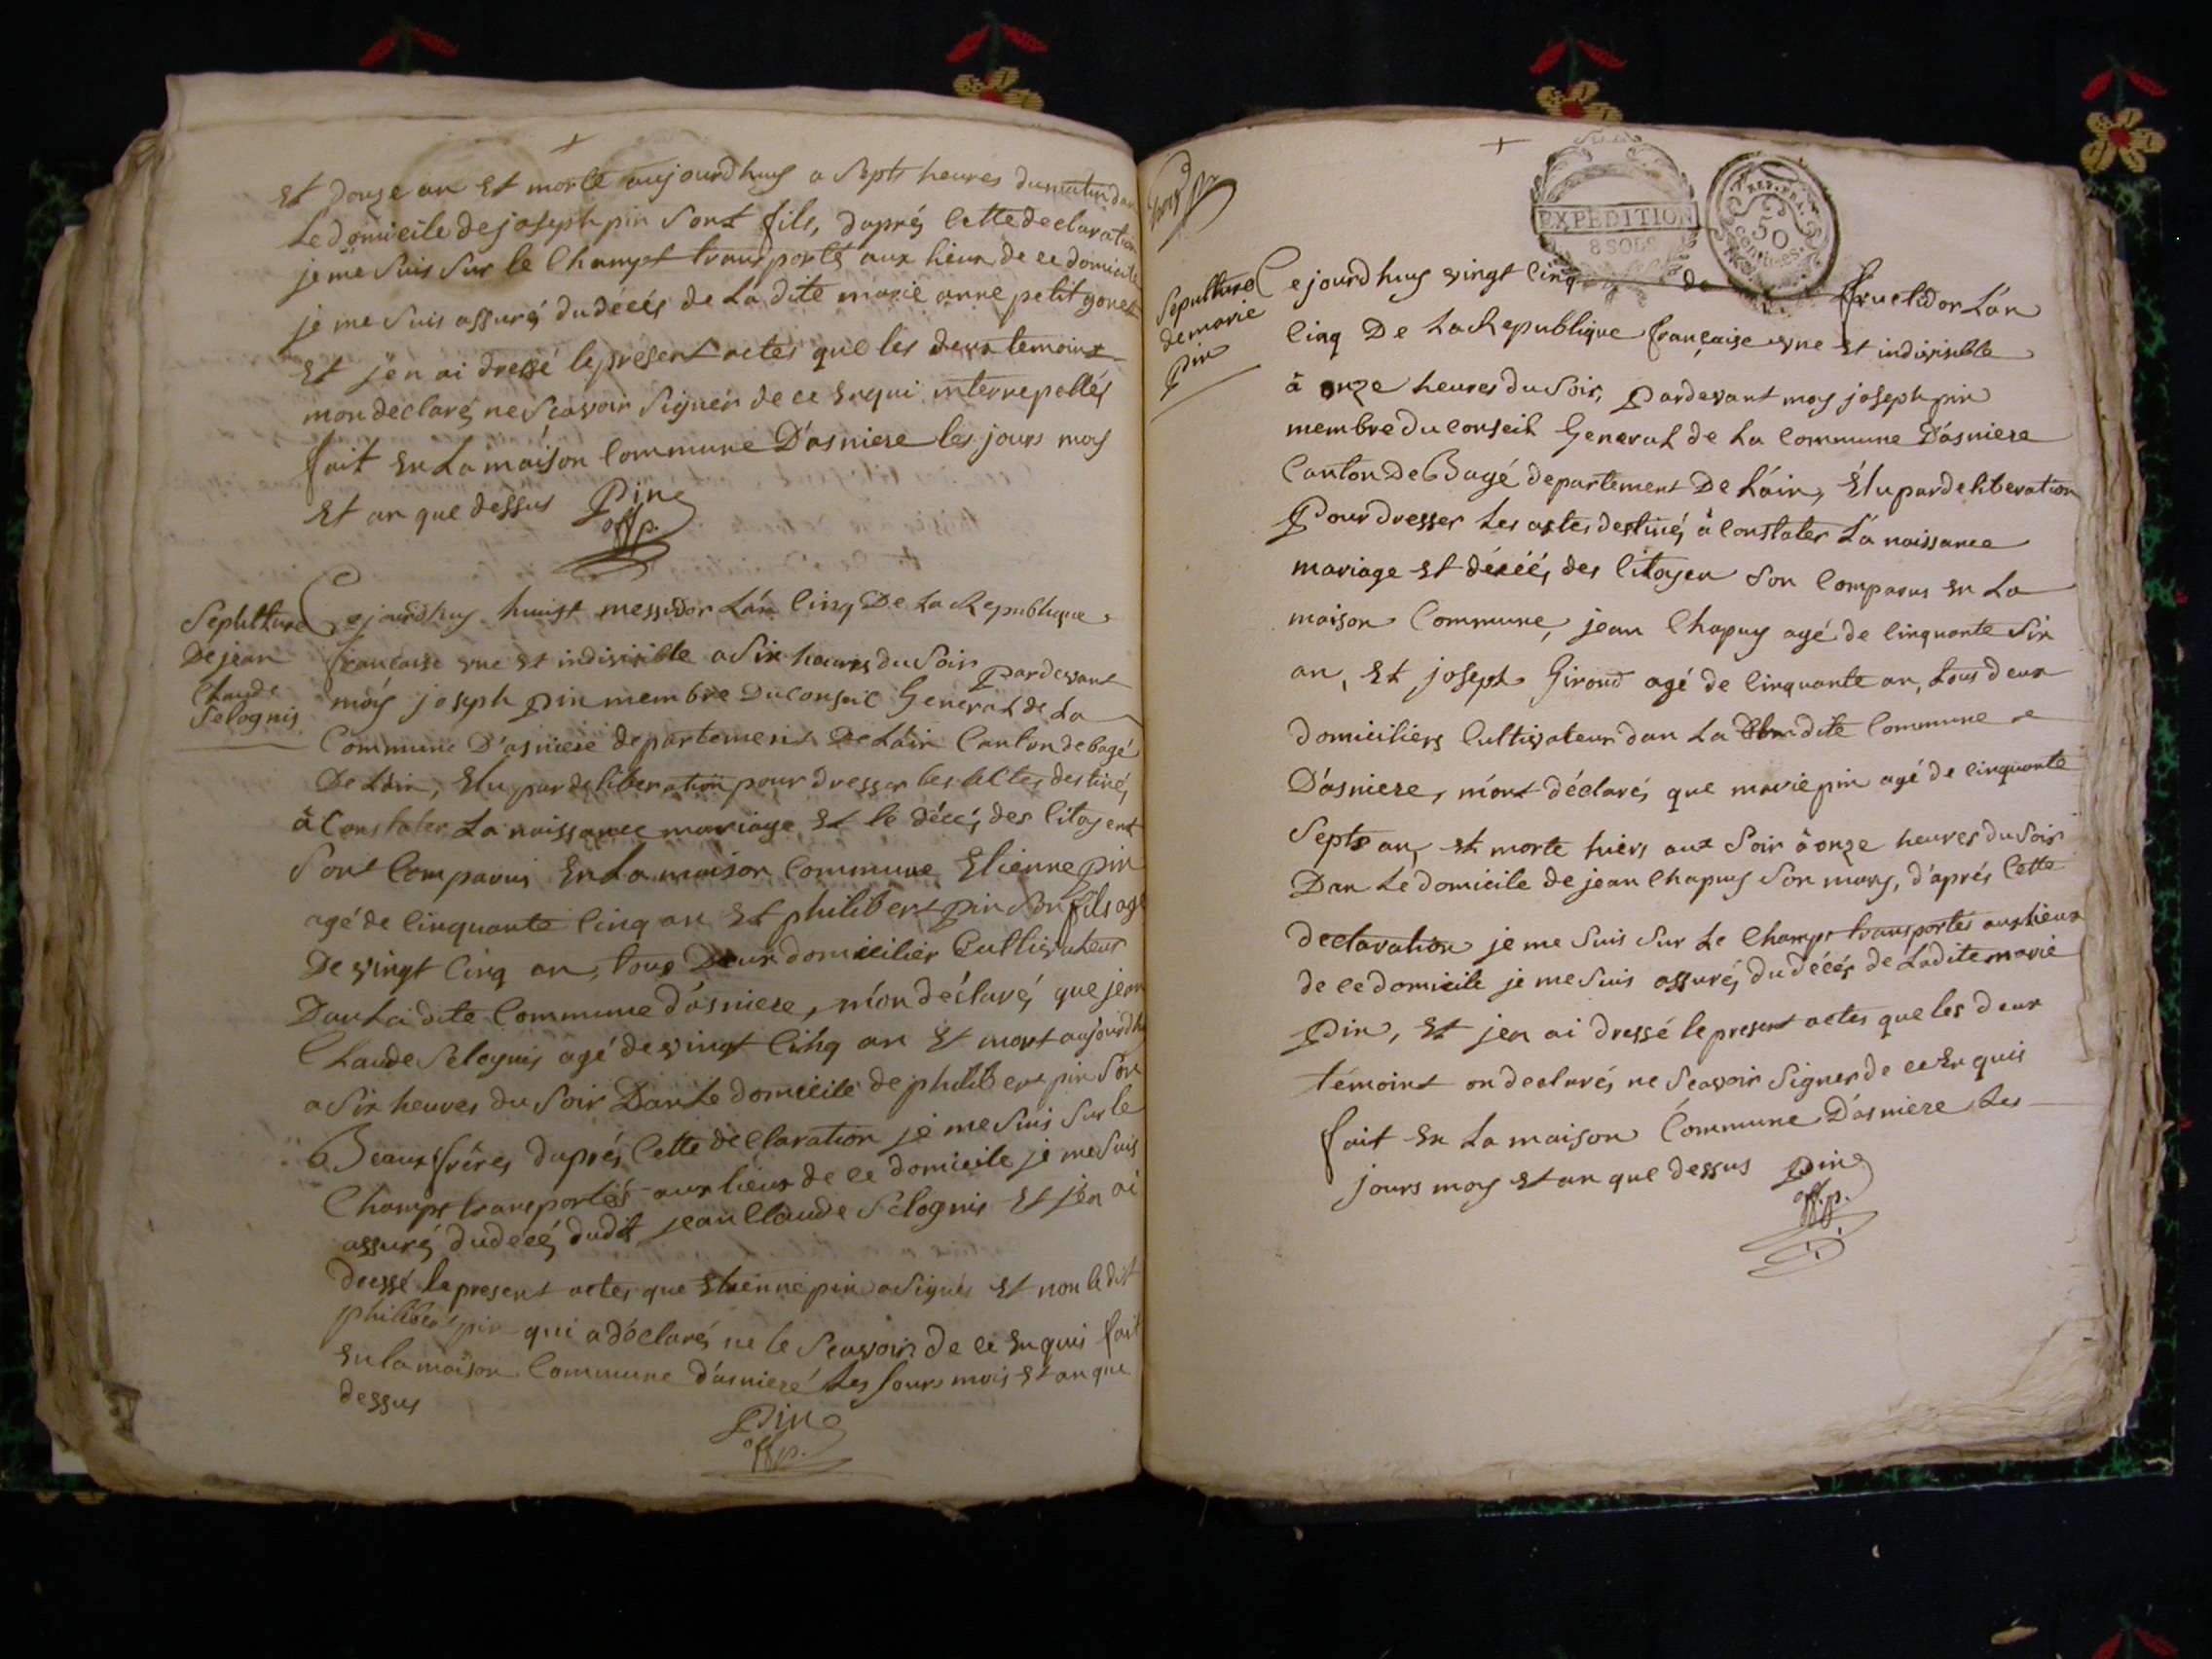 Et douze an Et morte aujourdhuy a Septs heures du matin dan
Le domicile de joseph pin Sont fils, daprés Cette declaration
je me Suis Sur le Champt transportés aux lieux de ce domicile
je me Suis assuré du décés de La dite marie anne petit gonet
Et jen ai dressé le present actes que les deux temoint
mon declaré ne Scavoir Signer de ce Enqui interrepellés
fait En La maison Commune D'asniere les jours moy
Et an que dessus Pin
off p.
Sepulture
De jean
Claude
Selognis
Cejourdhuy huist messidor L'an Cinq De La Republique
francaise une et indivisible a Six heures du Soir pardevant
moy joseph pin membre Du Conseil General de La
Commune D'asniere departement De L'ain Canton de bagé
De L'ain, Elu par deliberation pour dresser les Actes destiné
à Constater La naissance mariage Et le décé des Citoyent
Sont Comparus En La maison Commune Etienne pin
agé de Cinquante Cinq an Et philibert pin Son fils agé
De vingt Cinq an, tous Deux domicilier Cultivateur
Dan La dite Commune d'asniere, m'on déclaré que jean
Claude Selognis agé de vingt Cinq an Et mort aujourdhuy
a Six heures du Soir Dan Le domicile de philibert pin Son
Beaux frères, daprés Cette declaration je me Suis Sur le
Champt transportés aux lieux de ce domicile je me Suis
assuré du décé dudit jean Claude Selognis Et jen ai
dressé le present actes que Etienne pin a Signés Et non ledit
philibert pin qui a déclaré ne le Scavoir de ce Enquis fait
En la maison Commune d'asnieré Les Jours mois Et an que
dessus
Pin
off p.
EXPEDITION
8 SOLS
REP. FRA.
50
centimes.
Sepulture
de marie
pin
Cejourdhuy vingt Cinq de fructidor L'an
Cinq De La Republique française une Et indivisible
à onze heures du Soir, Pardevant moy joseph pin
membre du Conseil General de La Commune D'asniere
Canton De Bagé departement De L'ain, Elu par deliberation
Pour dresser Les actes destiné à Constater La naissance
mariage Et décéé, des Citoyen Son Comparus En La
maison Commune, jean Chapuy agé de Cinquante Six
an, Et joseph Giroud agé de Cinquante an, tous deux
domiciliers Cultivateur dan La dite Commune
D'asniere, m'ont déclaré, que marie pin agé de Cinquante
Septs an, Et morte hiers aux Soir à onze heures du Soir
Dan Le domicile de jean Chapuy Son mary, d'aprés Cette
declaration je me Suis Sur Le Champt transportés aux lieux
de ce domicile je me Suis assuré, du décés de Ladite marie
pin, Et jen ai dressé le present actes que les deux
témoint on declaré, ne Scavoir Signer de ce Enquis
fait En La maison Commune D'asniere Les
jours moy Et an que dessus Pin
off.p.